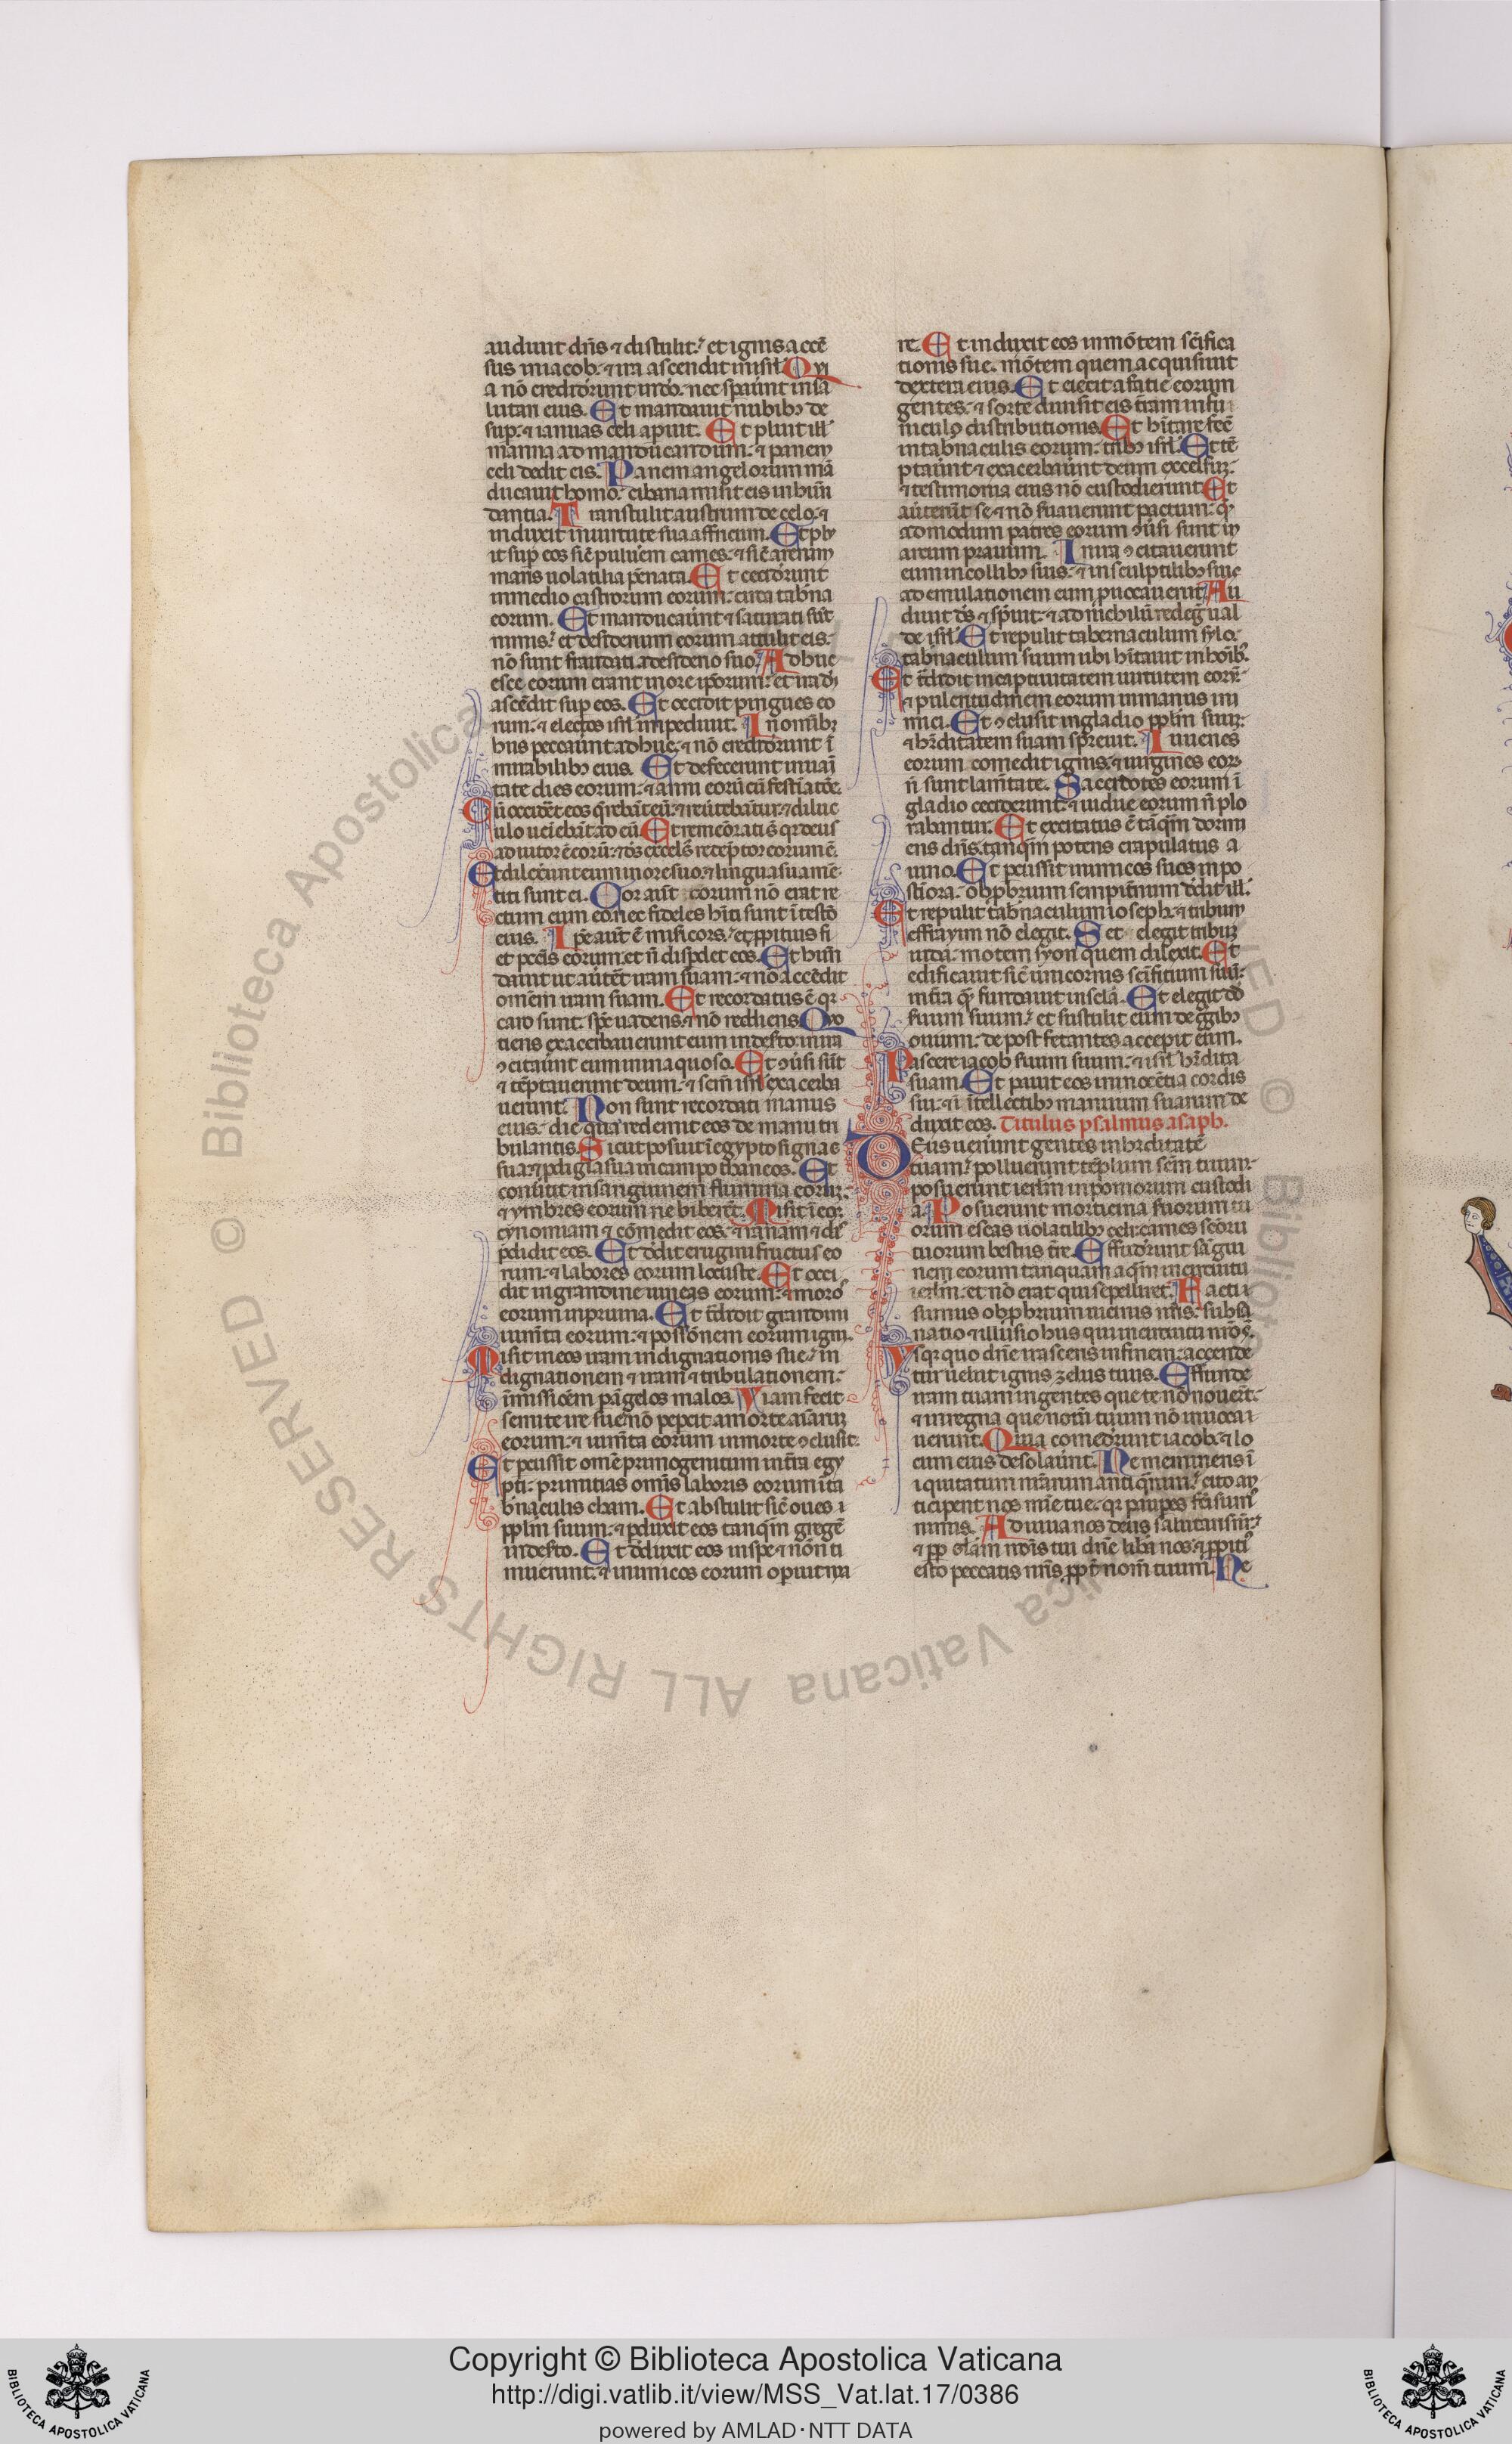 audiuit dñs ⁊ distulit: et ignis accē
sus in iacob: ⁊ ira ascendit in isrl̄. Qui
a nō crediderunt in deo: nec sperauer̄t in salu
lutari eius. Et mandauit nubibꝫ de
sup: ⁊ ianuas celi aperuit. Et pluit ill̄
manna ad manducandum: ⁊ panem
celi dedit eis. Panem angelorum mā
ducauit homo: cibaria misit eis in habun
dantia. Transtulit austrum de celo: ⁊
induxit in uirtute sua affricum. Et plu
it sup eos sic̄ puluerem carnes: ⁊ sic̄ arenam
maris uolatilia pēnata. Et ceciderunt
in medio castrorum eorum: circa tab̄na
eorum. Et manducauer̄t ⁊ saturati sūt
nimis: et desiderium eorum attulit eis:
nō sunt fraudati a desiderio suo. Adhuc
esce eorum erant in ore ip̄orum: et ira dei
ascēdit sup eos. Et occidit pingues eo
rum: ⁊ electos isrl̄ impediuit. In omnibꝫ
hiis peccauer̄t adhuc: ⁊ nō crediderunt ī
mirabilibꝫ eius. Et defecerunt in uani
tate dies eorum: ⁊ anni eorū cū festinatiōe.
Cū occideret eos q̄rebāt eū: ⁊ reuertebātur: ⁊ diluc
ulo ueniebāt ad eū. Et rememorati sūt qꝛ deus
adiutor ē eorū: ⁊ deus excelsus redēptor eorum ē.
Et dilexerunt eum in ore suo: ⁊ lingua sua mē
titi sunt ei. Cor aut̄ eorum nō erat re
ctum cum eo: nec fideles hīti sunt ī testō
eius. Ipe aut̄ ē misericors: et ꝓpitius fi
et pccīs eorum: et ñ disꝑdet eos. Et habun
dauit ut auertet iram suam: ⁊ nō accēdit
omēm iram suam. Et recordatus ē qꝛ
caro sunt: spc uadens ⁊ nō rediens. Quo
tiens exacerbauerunt eum in deserto: in ira
ꝯcitauer̄t eum in inaquoso. Et ꝯuersi sūt
⁊ tēptauerunt deum: ⁊ scm̄ isrl̄ exacerba
uerunt. Non sunt recordati manus
eius: die qua redemit eos de manu tri
bulantis. Sicut posuit ī egypto signa s
sua: ⁊ ꝓdigia sua in campo thaneos. Et
conūtit in sanguinem flumina eorum:
⁊ ymbres eorum ne biberēt. Misit ī eos
cynomiam ⁊ cōmedit eos: ⁊ ranam ⁊ dis
pdidit eos. Et dedit erugini fructus eo
rum: ⁊ labores eorum locuste. Et occi
dit in grandine uineas eorum: ⁊ moros
eorum in pruina. Et tradidit grandini
iumēta eorum: ⁊ possōnem eorum igni.
Misit in eos iram indignationis sue: in
dignationem ⁊ iram ⁊ tribulationem:
īmissiōem p angelos malos. Viam fecit
semite ire sue: nō pepercit a morte aīarum
eorum: ⁊ iumēta eorum in morte ꝯclusit.
Et percussit omē primogenitum in tr̄a egy
pti: primitias omīs laboris eorum ī ta
b̄naculis cham. Et abstulit sic̄ oues
pplm̄ suum: ⁊ pduxit eos tanq̄m gregē
in deserto. Et deduxit eos in spe ⁊ nō ti
muerunt: ⁊ inimicos eorum operuit ma
re. Et induxit eos in mōtem sc̄ifica
tionis sue: mōtem quem acquisiuit
dextera eius. Et eiecit a facie eorum
gentes: ⁊ sorte diuisit eis tr̄am in fu
niculo distributionis. Et habitare fecit
in tabernaculis eorum: tribꝫ isrl̄. Et tē
ptauer̄t ⁊ exacerbauer̄t deum excelsum:
⁊ testimonia eius nō custodierunt. Et
auerter̄t se ⁊ nō suauerunt pactum: q̄
admodum patres eorum ꝯuersi sunt in
arcum prauum. In ira ꝯcitauerunt
eum in collibꝫ suis: ⁊ in sculptilibꝫ suis
ad emulationem eum puocauerūt. Au
diuit ds̄ ⁊ spreuit: ⁊ ad nichilū redegit ual
de isrl̄. Et repulit tabernaculum sylo:
tab̄naculum suum ubi hītauit in hoībꝫ.
Et tradidit in captiuitatem uirtutem eorum:
⁊ pulcritudinem eorum in manus ini
mici. Et ꝯclusit in gladio pplm̄ suum:
⁊ hꝛeditatem suam spreuit. Iuuenes
eorum comedit ignis: ⁊ uirgines eorum
ñ sunt lamētate. Sacerdotes eorum ī
gladio ceciderunt: ⁊ uidue eorum ñ plo
rabantur. Et excitatus ē tāq̄m dormi
ens dñs: tanq̄m potens crapulatus a
uino. Et percussit inimicos suos in po
steriora: obpbrium sempiternum dedit ill̄.
Et repulit tab̄naculum ioseph: ⁊ tribum
effraym nō elegit. Set elegit tribum
iuda: mōtem syon quem dilexit. Et
edificauit sic̄ unicornis sc̄ificium suū:
in tr̄a q̄ fundauit in sclā. Et elegit dd̄
suum suum: et sustulit eum de gregibꝫ
ouium: de post fetantes accepit eum.
Pascere iacob suum suum: ⁊ isrl̄ hꝛedita
suam. Et pauit eos in innocētia cordis
sui: ⁊ ī intellectibꝫ manuum suarum de
duxit eos. Titulus psalmus asaph.
Deus uenerunt gentes in hꝛeditatē
tuam: polluerunt tēplum scm̄ tuum:
posuerunt ierlm̄ in pomorum custodi
a. Posuerunt morticina suorum tu
orum escas uolatilibꝫ celi: carnes scōru
tuorum bestiis tr̄e. Effuderunt sāgui
nem eorum tanquam aq̄m in circuitu
ierlm̄: et nō erat qui sepeliret. Facti
sumus obpbrium uicinis nr̄is: subsā
natio ⁊ illusio hiis qui in circuitu nr̄o sūt.
Vsqꝫ quo dñe irasceris in finem: accende
tur uelut ignis zelus tuus. Effunde
iram tuam in gentes que te nō nouert̄:
⁊ in regna que nom̄ tuum nō inuoca
uerunt. Quia comederunt iacob: ⁊ lo
cum eius desolauer̄t. Ne memineris ī
iquitatum nr̄arum antiq̄rum: cito an
ticipent nos mīe tue: qꝛ paupes fc̄i sum
nimis. Adiuua nos deus salutaris nr̄:
⁊ pp glām nōis tui dñe libera nos: ⁊ ꝓpiti
esto peccatis nr̄is ppt̄ nom̄ tuum. Ne
Copyright © Biblioteca Apostolica Vaticana
http://digi.vatlib.it/view/MSS_Vat.lat.17/0386
powered by AMLAD·NTT DATA
BIBLIOTECA APOSTOLICA VATICANA
BIBLIOTECA APOSTOLICA VATICANA
© Biblioteca Apostolica Vaticana ALL RIGHTS RESERVED